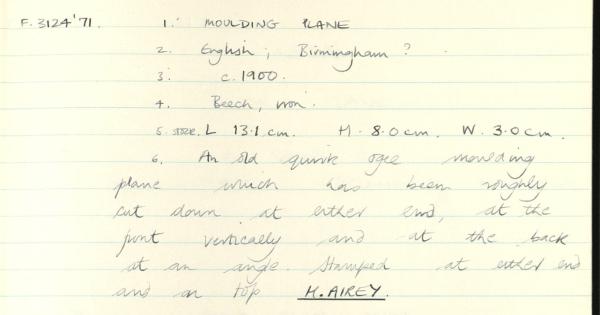 F.3124'71. 1. MOULDING PLANE
2. English, Birmingham?
3. c.1900.
4. Beech, iron.
5. SIZE. L 13.1 cm. H. 8.0 cm. W. 3.0 cm.
6. An old quirk ogee moulding
plane which has been roughly
cut down at either end, at the
front vertically and at the back
at an angle. Stamped at either end
and on top H. AIREY.